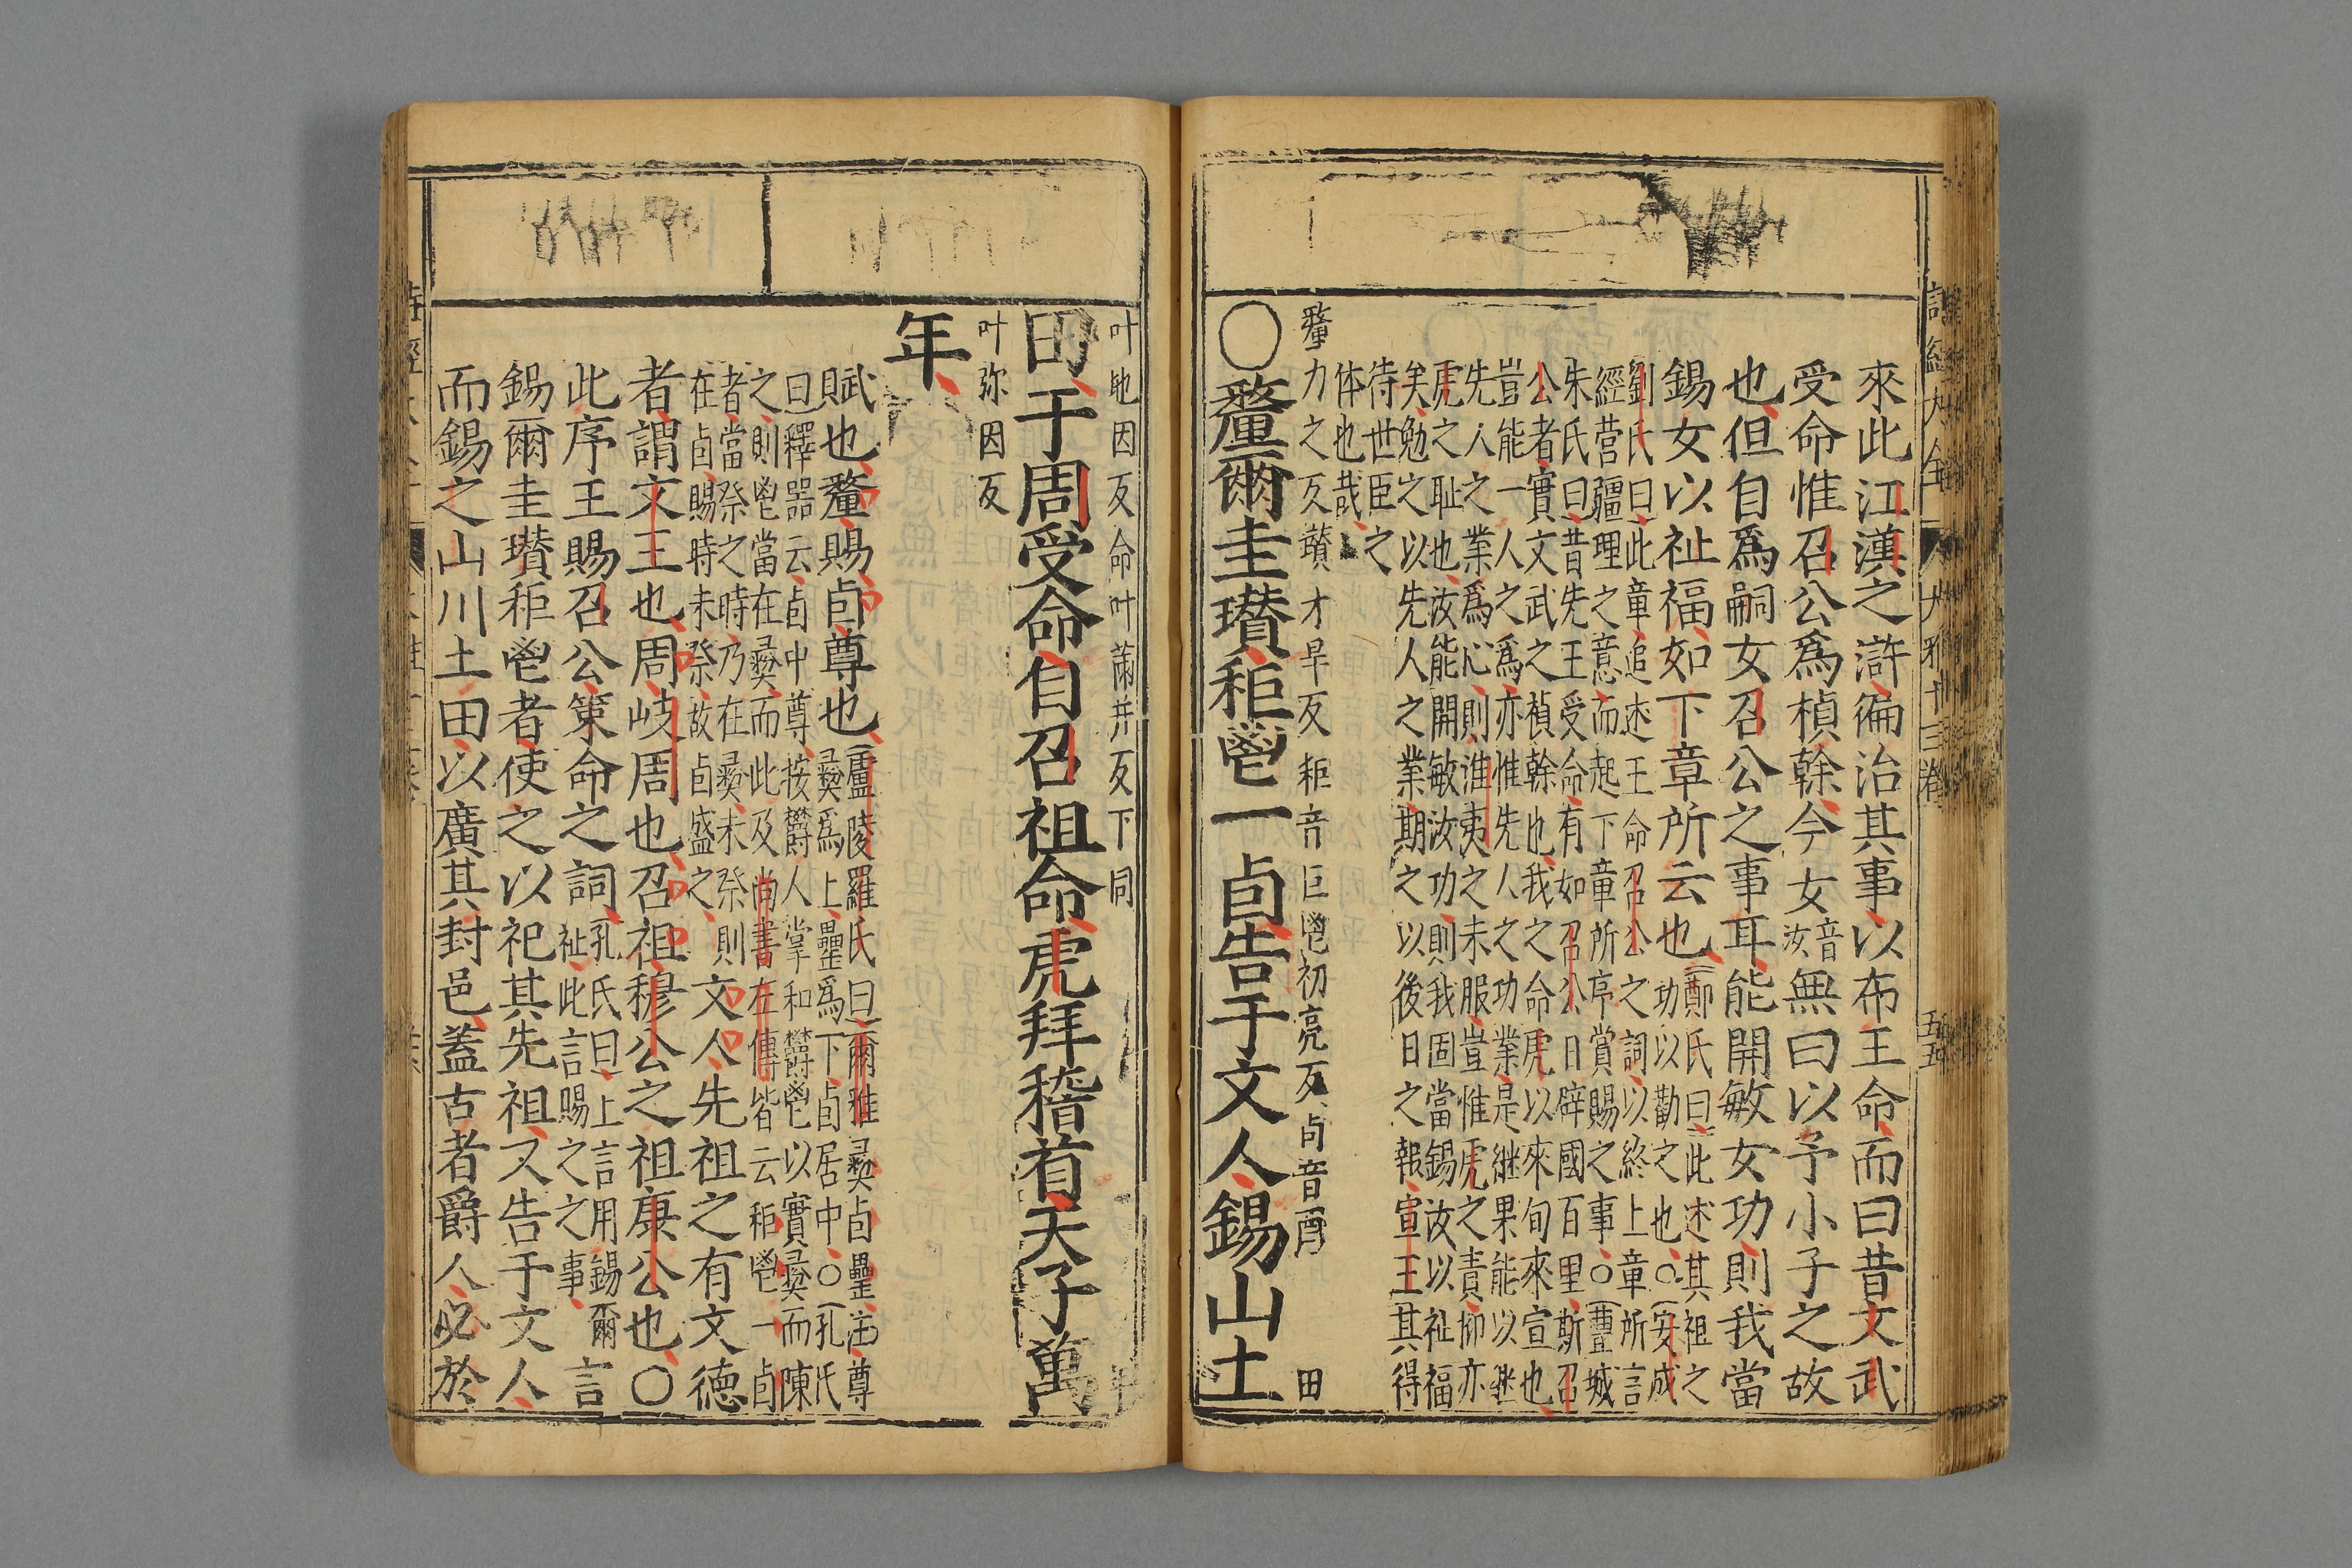 來此江漢之滸徧治其事以布王命而曰昔文武
受命惟召公爲楨榦今女音汝無曰以予小子之故
也但自爲嗣女召公之事耳能開敏女功則我當
錫女以祉福如下章所云也鄭氏曰此述其祖之
功以勸之也○安成
劉氏曰此章追述王命召公之詞以終上章所言
經营疆理之意而起下章所序賞賜之事○豐城
朱氏曰昔先王受命有如召公日辟國百里斯召
公者實文武之楨榦也我之命虎以來旬來宣也
豈能一人之爲亦惟先人之功業是継果能以継
先人之業爲心則淮夷之未服豈惟虎之責抑亦
虎之耻也汝能開敏汝功則我固當錫汝以祉福
矣勉之以先人之業期之以後日之報宣王其得
待世臣之
体也哉
釐力之反瓉才旱反秬音巨鬯初亮反卣音酉 田
○釐爾圭瓚秬鬯一卣告于文人錫山土
叶地因反命叶滿并反下同
田于周受命自召祖命虎拜稽首天子萬
叶弥因反
年
賦也釐賜卣尊也廬陵羅氏曰爾雅彝卣罍註尊
彝爲上罍爲下卣居中○孔氏
曰釋器云卣中尊按欝人掌和欝鬯以實彝而陳
之則鬯當在彝而此及尚書左傳皆云秬鬯一卣
者當祭之時乃在彝未祭則
在卣賜時未祭故卣盛之文人先祖之有文德
者謂文王也周岐周也召祖穆公之祖康公也○
此序王賜召公策命之詞孔氏曰上言用錫爾
祉此言賜之之事言
錫爾圭瓚秬鬯者使之以祀其先祖又告于文人
而錫之山川土田以廣其封邑蓋古者爵人必於